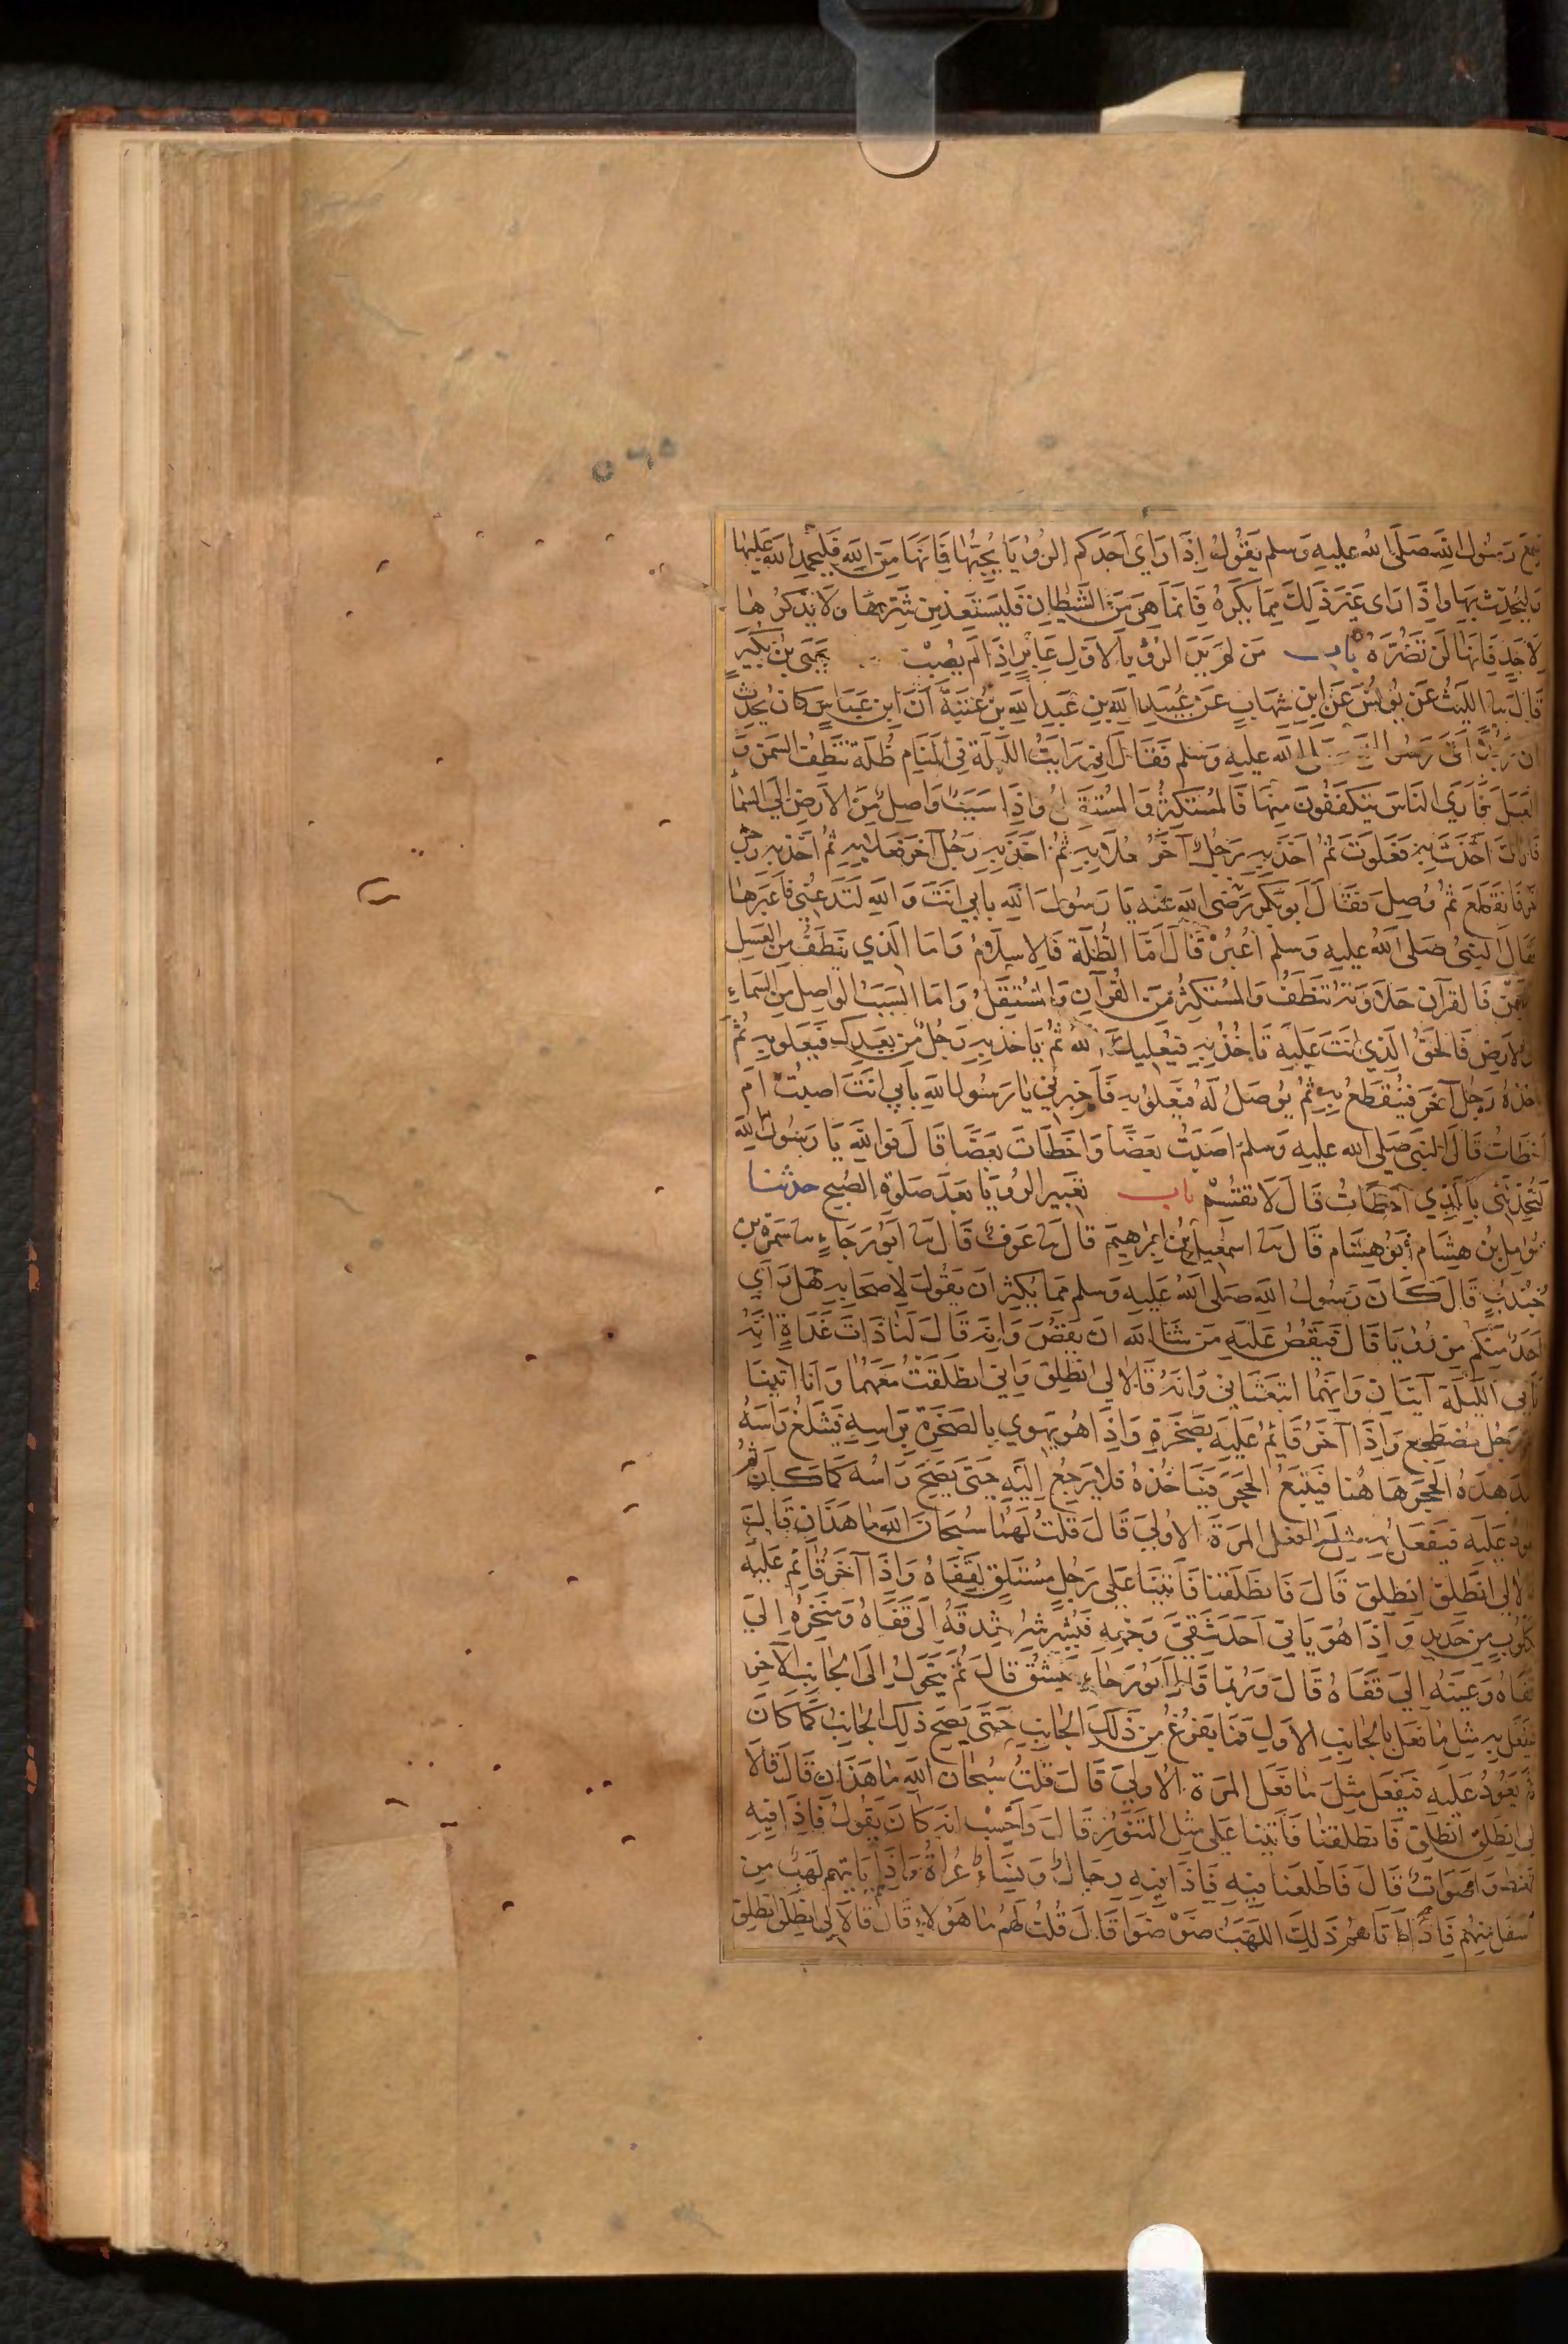 سمع رسول الله صلى الله عليه وسلم يقول اذا راى احدكم الرؤيا يحبها فانها من الله فليحمد الله عليها
وليحدث بها واذا راى غير ذلك مما يكره فانما هي من الشيطان فليستعذ من شرها ولا يذكرها
لاحد فانها لن تضره باب من لم ير الرؤيا لاول عابر اذا لم يصب يحيى بن بكير
قال نا الليث عن يونس عن ابن شهاب عن عبيد الله بن عبد الله بن عتبة ان ابن عباس كان يحدث
ان رجلا اتى رسول الله صلى الله عليه وسلم فقال اني رايت الليلة في المنام ظلة تنطف السمن و
العسل فارى الناس يتكففون منها فالمستكثر والمستقل واذا سبب واصل من الارض الى السماء
فاراك اخذت به فعلوت ثم اخذ به رجل آخر فعلا به ثم اخذ به رجل آخر فعلا به ثم اخذ به رجل
آخر فانقطع ثم وصل فقال ابو بكر رضى الله عنه يا رسول الله بابي انت والله لتدعني فاعبرها
فقال النبي صلى الله عليه وسلم اعبر قال اما الظلة فالاسلام واما الذي ينطف من العسل
والسمن فالقرآن حلاوته تنطف والمستكثر من القرآن والمستقل واما السبب الواصل من السماء
الى الارض فالحق الذي انت عليه تاخذ به فيعليك الله ثم ياخذ به رجل من بعدك فيعلو به ثم
ياخذه رجل آخر فينقطع به ثم يوصل له فيعلو به فاخبرني يا رسول الله بابي انت اصبت ام
اخطات قال النبي صلى الله عليه وسلم اصبت بعضا واخطات بعضا قال فوالله يا رسول الله
لتحدثني بالذي اخطات قال لا تقسم باب تعبير الرؤيا بعد صلوة الصبح حدثنا
مؤمل بن هشام ابو هشام قال نا اسمعيل بن ابرهيم قال نا عوف قال نا ابو رجاء نا سمرة بن
جندب قال كان رسول الله صلى الله عليه وسلم مما يكثر ان يقول لاصحابه هل راى
احد منكم من رؤيا قال فيقص عليه من شاء الله ان يقص وانه قال لنا ذات غداة انه
اتاني الليلة آتيان وانهما ابتعثاني وانه قالا لي انطلق واني انطلقت معهما وانا اتينا
على رجل مضطجع واذا آخر قائم عليه بصخرة واذا هو يهوي بالصخرة براسه فيثلغ راسه
فيتدهده الحجر هاهنا فيتبع الحجر فياخذه فلا يرجع اليه حتى يصح راسه كما كان ثم
يعود عليه فيفعل به مثل ما فعل المرة الاولى قال قلت لهما سبحان الله ما هذان قال
قالا لي انطلق انطلق قال فانطلقنا فاتينا على رجل مستلق لقفاه واذا آخر قائم عليه
بكلوب من حديد واذا هو ياتي احد شقي وجهه فيشرشر شدقه الى قفاه ومنخره الى
قفاه وعينه الى قفاه قال وربما قال ابو رجاء فيشق قال ثم يتحول الى الجانب الآخر
فيفعل به مثل ما فعل بالجانب الاول فما يفرغ من ذلك الجانب حتى يصح ذلك الجانب كما كان
ثم يعود عليه فيفعل مثل ما فعل المرة الاولى قال قلت سبحان الله ما هذان قال قالا
لي انطلق انطلق فانطلقنا فاتينا على مثل التنور قال واحسب انه كان يقول فاذا فيه
لغط واصوات قال فاطلعنا فيه فاذا فيه رجال ونساء عراة واذا ياتيهم لهب من
اسفل منهم فاذا اتاهم ذلك اللهب ضوضوا قال قلت لهم ما هؤلاء قال قالا لي انطلق انطلق